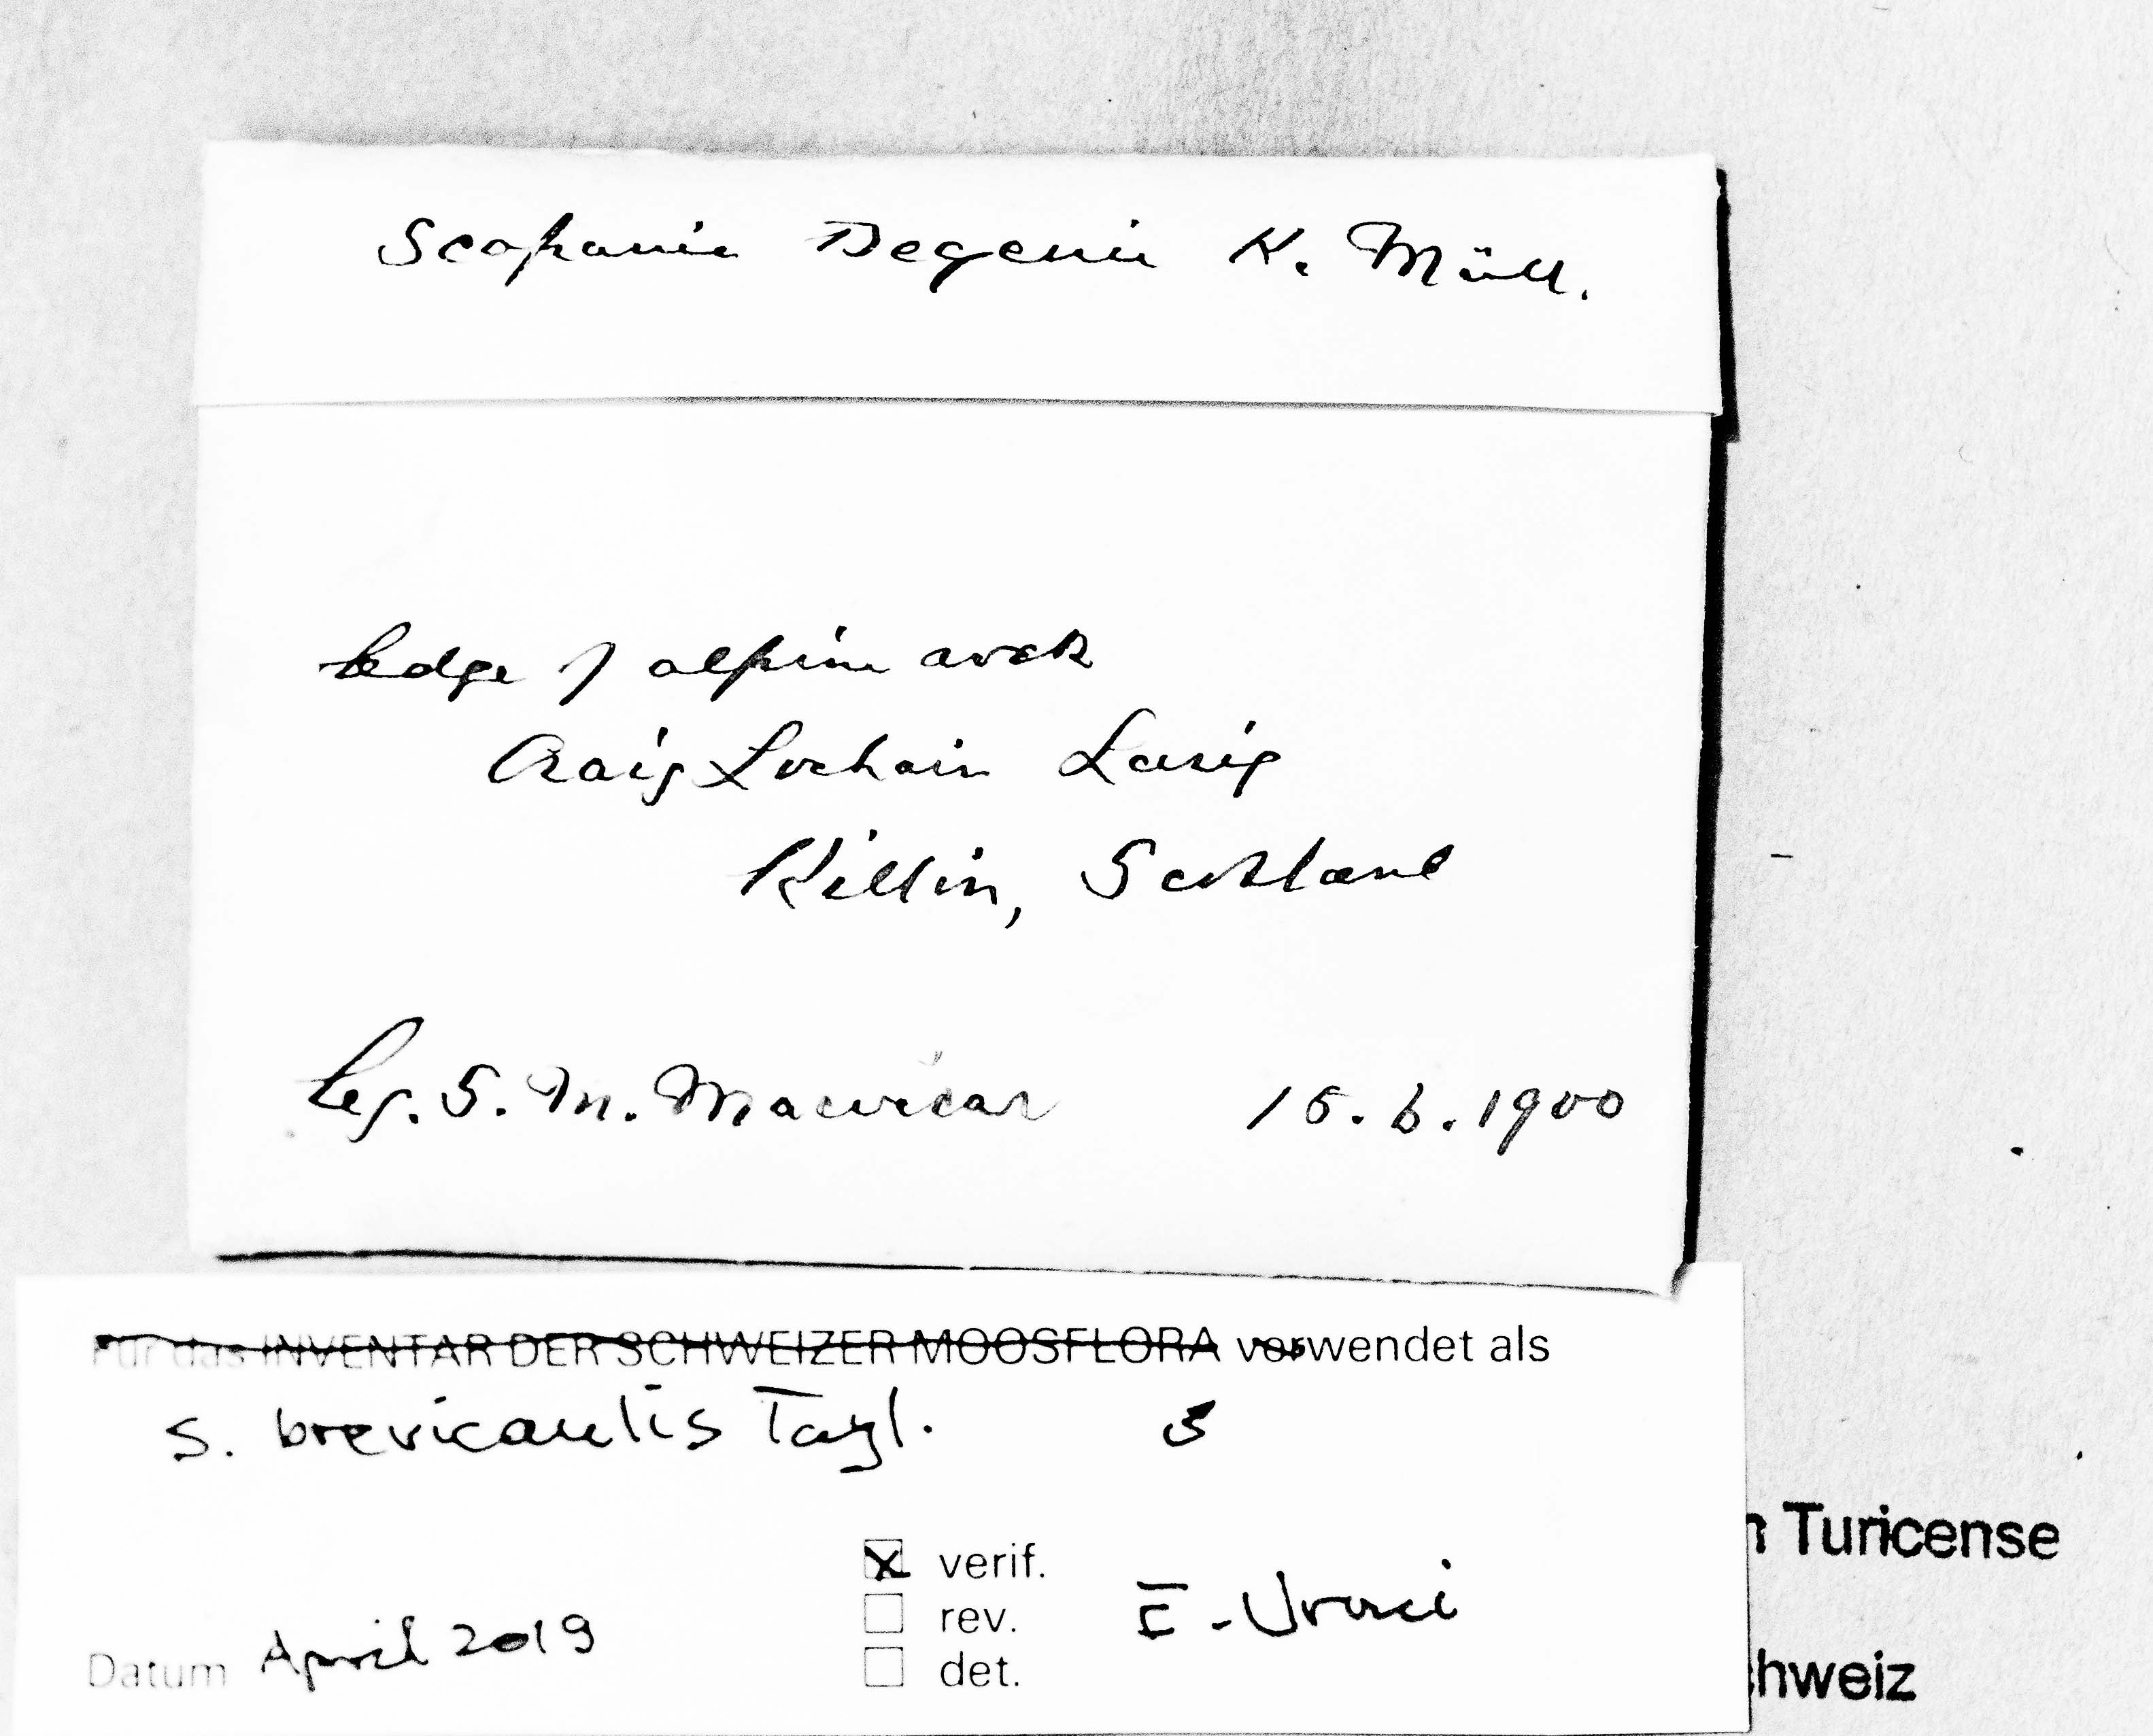 Scapania Degenii K. Müll.
Ledge of alpine rock
Craig Lochain Larig
Killin, Scotland
Leg. S. M. Macvicar 15.6.1900
Für das INVENTAR DER SCHWEIZER MOOSFLORA verwendet als
S. brevicaulis Tayl.
verif.
rev.
det.
E. Urmi
Datum April 2019
Turicense
hweiz